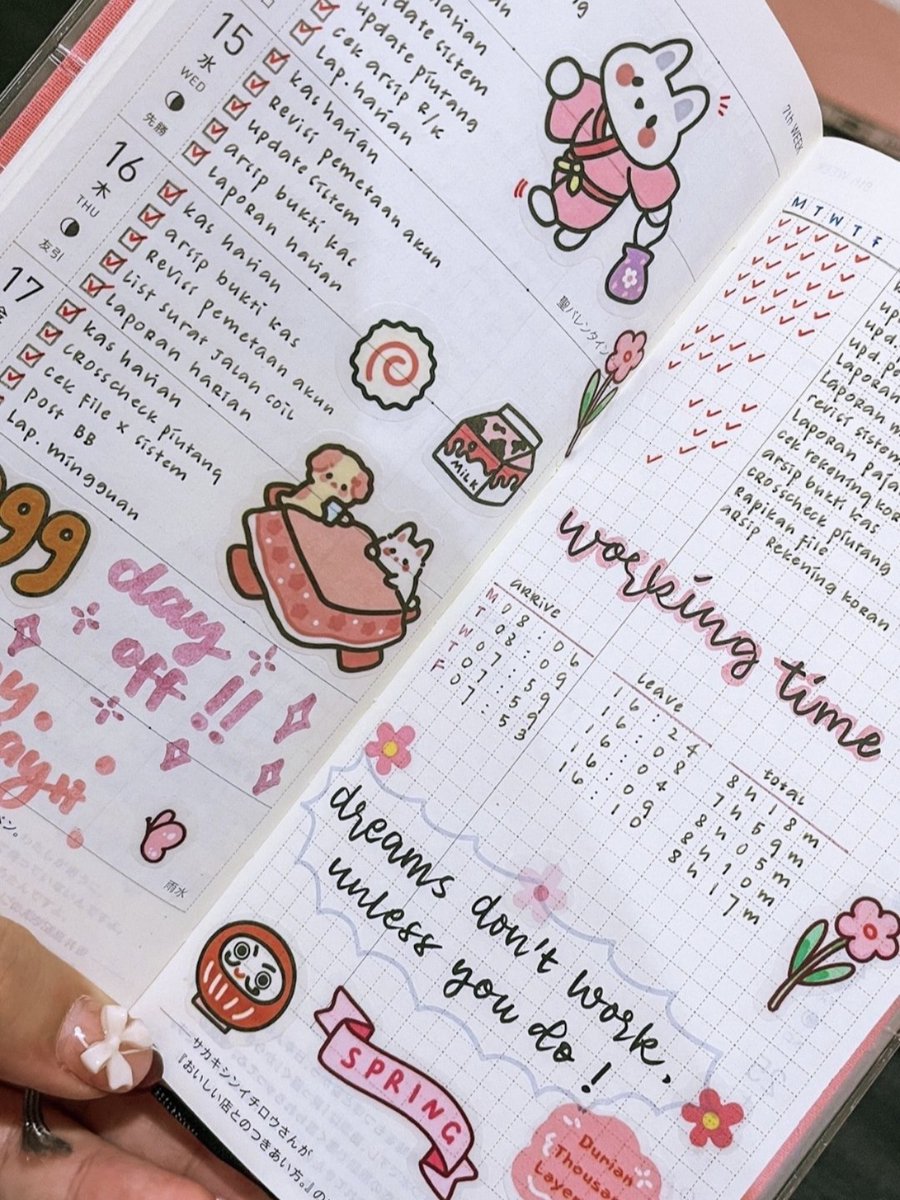 harian
update sistem
update piutang
cek arsip R/K
Lap. harian
15
水
WED
先勝
kas harian
Revisi pemetaan akun
update sistem
arsip bukti kas
Laporan harian
16
木
THU
友引
kas harian
arsip bukti kas
Revisi pemetaan akun
List surat jalan coil
Laporan harian
17
kas harian
crosscheck piutang
cek file x sistem
post BB
Lap. mingguan
99
day
off!!
雨水
聖バレンタイン
MILK
7th WEEK
M T W T F
Laporan
revisi sistem
Laporan
cek rekening
arsip bukti kas
crosscheck piutang
Rapikan file
arsip Rekening koran
working time
arrive
M 08:06
T 08:09
W 07:59
T 07:59
F 07:53
leave
16:24
16:08
16:04
16:09
16:10
total
8h 18m
7h 59m
8h 05m
8h 10m
8h 17m
dreams don't work,
unless you do!
SPRING
Durian
サカキシンイチロウさんが
『おいしい店とのつきあい方。』の